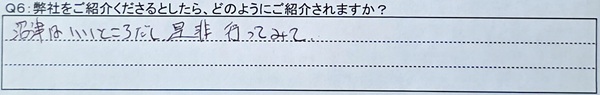 Q6:弊社をご紹介くださるとしたら、どのようにご紹介されますか？
沼津はいいところだし 是非 行ってみて、